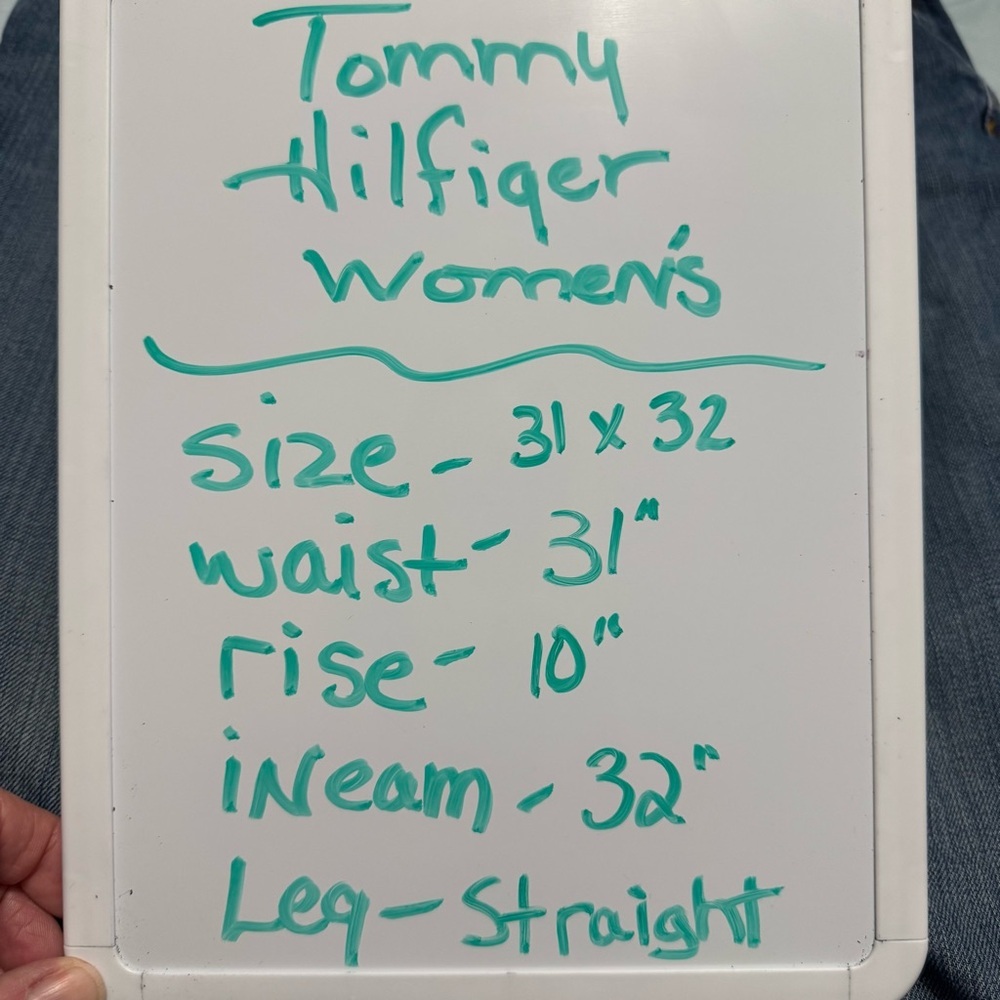 Tommy
Hilfiger
Women's
Size - 31 x 32
waist - 31"
rise - 10"
iNeam - 32"
Leg - Straight